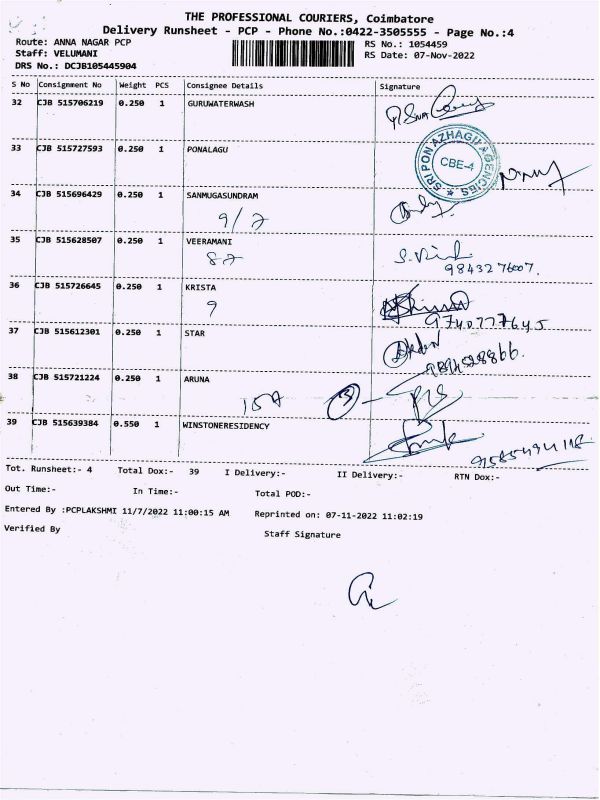 THE PROFESSIONAL COURIERS, Coimbatore
Delivery Runsheet - PCP - Phone No.:0422-3505555 - Page No.:4
Route: ANNA NAGAR PCP RS No.: 1054459
Staff: VELUMANI RS Date: 07-Nov-2022
DRS No.: DCJB105445904
S No Consignment No Weight PCS Consignee Details Signature
32 CJB 515706219 0.250 1 GURUWATERWASH
33 CJB 515727593 0.250 1 PONALAGU
SRI PON AZHAGI AGENCIES ★ CBE-4
34 CJB 515696429 0.250 1 SANMUGASUNDRAM
9/7
35 CJB 515628507 0.250 1 VEERAMANI
9843276007.
36 CJB 515726645 0.250 1 KRISTA
9
9740777645
37 CJB 515612301 0.250 1 STAR
38 CJB 515721224 0.250 1 ARUNA
39 CJB 515639384 0.550 1 WINSTONERESIDENCY
Tot. Runsheet:- 4 Total Dox:- 39 I Delivery:- II Delivery:- RTN Dox:-
Out Time:- In Time:- Total POD:-
Entered By :PCPLAKSHMI 11/7/2022 11:00:15 AM Reprinted on: 07-11-2022 11:02:19
Verified By Staff Signature